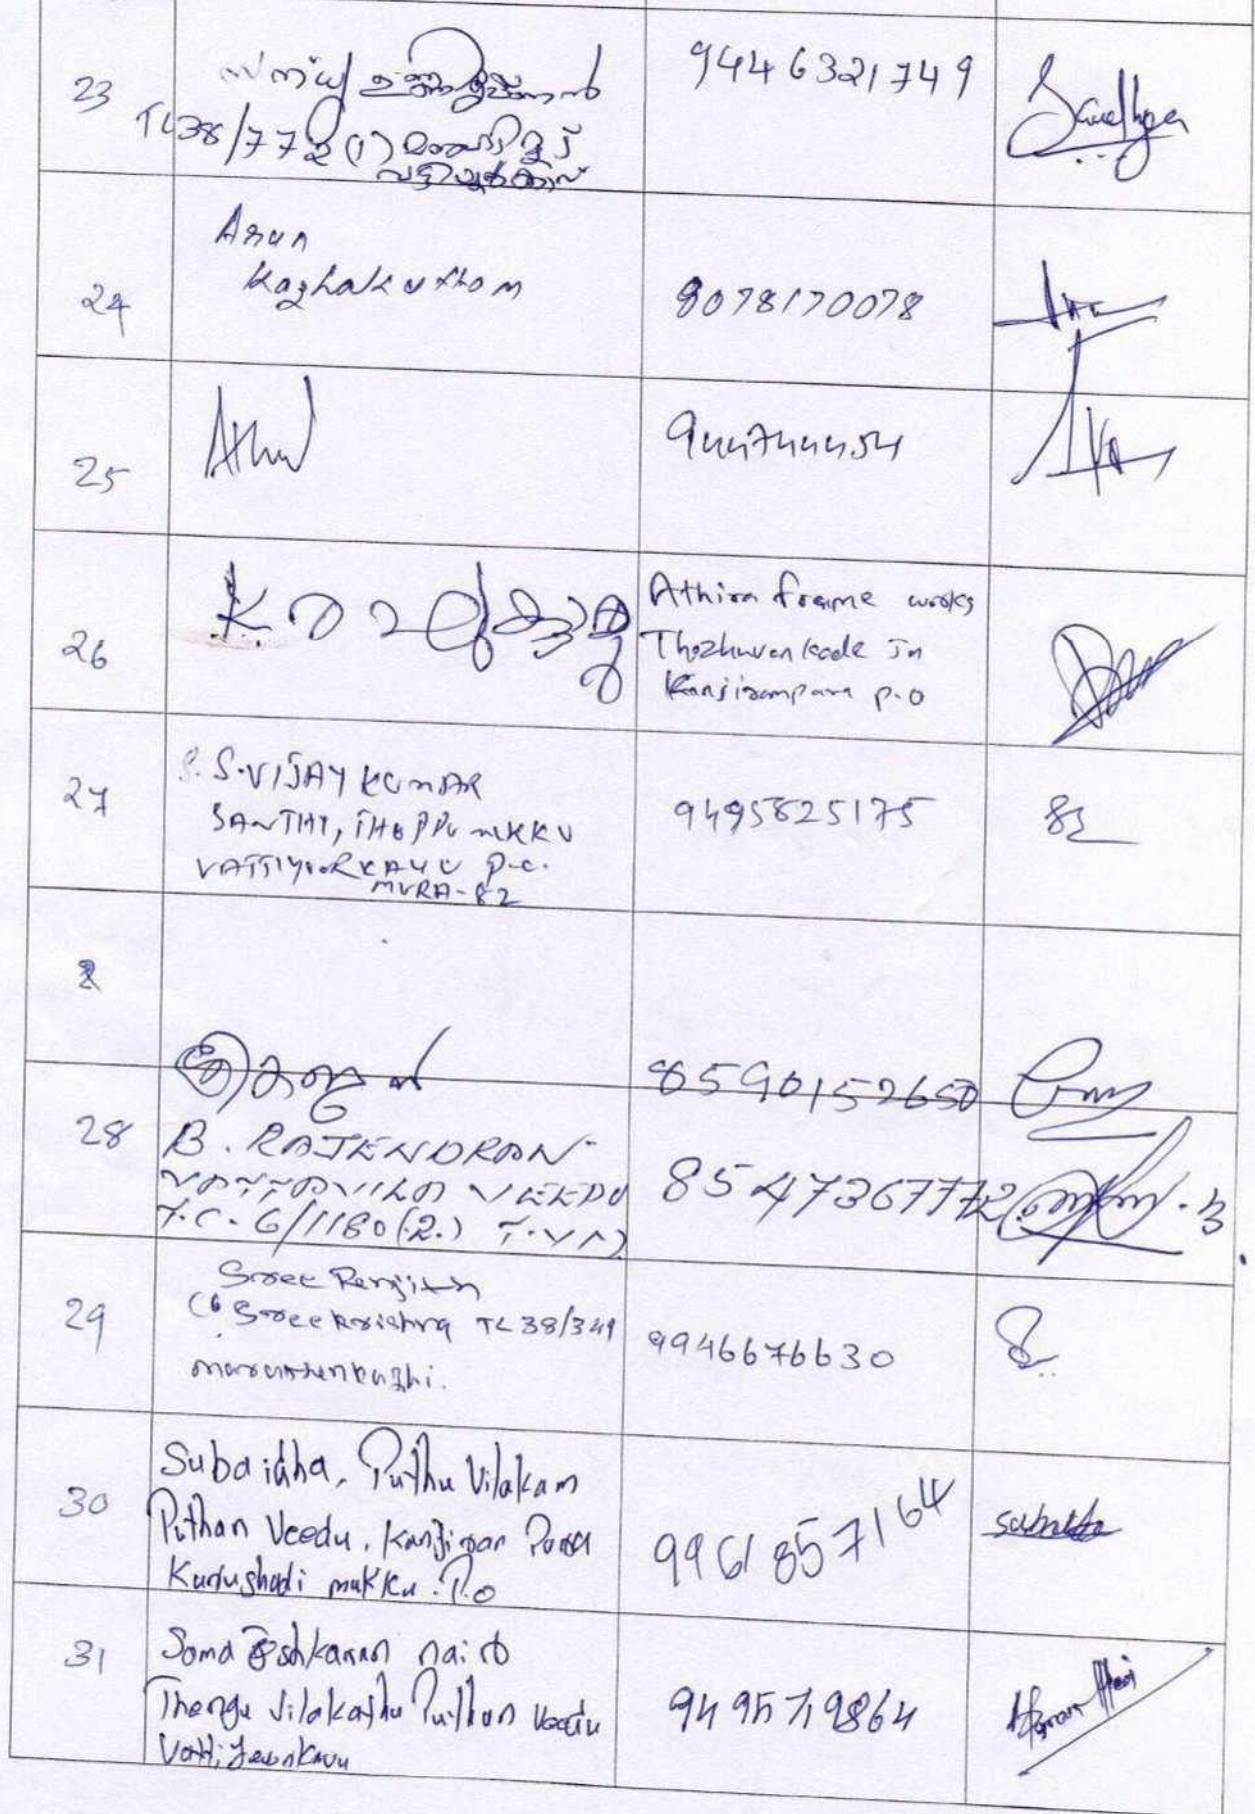 23
സന്ധ്യ ഉണ്ണികൃഷ്ണൻ
9446321749
Sandhya
TC38/772(1)
24
Arun
Kazhakuttom
8078170078
25
Athul
9447444454
26
Athira frame works
Thozhuvankode Jn
Kanjirampara P.O
27
S.VIJAYKUMAR
SANTHI, THOPPUMUKKU
VATTIYOORKAVU P.O.
MVRA-82
9495825175
8590152650
28
B. RAJENDRAN
VATTAVILA VEEDU
T.C. 6/1180(2.) T.V.M
8547367772
29
Sree Renjith
Sreekrishna TC 38/349
9946676630
30
Subaidha, Puthu Vilakam
Puthan Veedu, Kanjiram Para
mukku. P.O
9961857164
31
Soma nair
Thengu Vilakathu Puthan Veedu
Vattiyoorkavu
9495719864